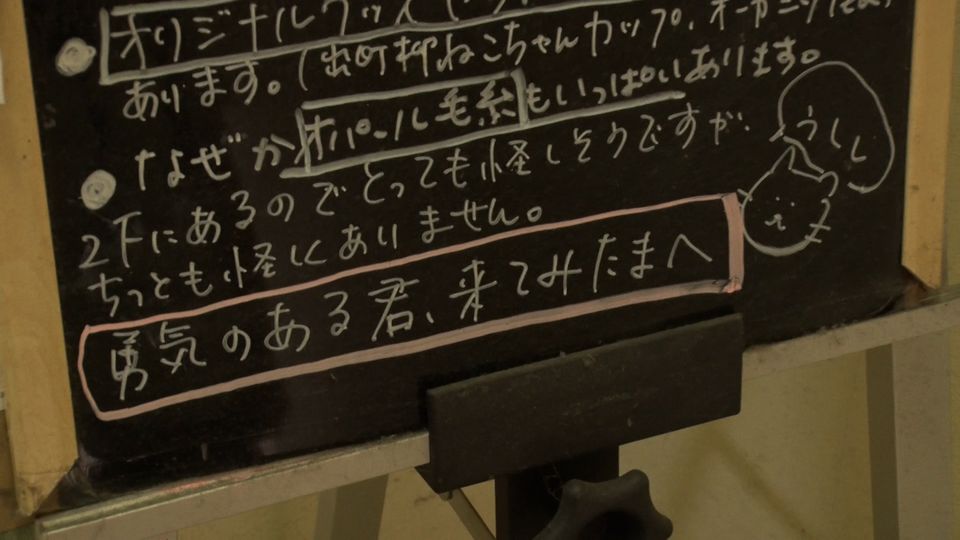 オリジナルグッズ
あります。(出町柳ねこちゃんカップ、オーガニック
なぜかオパール毛糸もいっぱいあります。
2Fにあるのでとっても怪しそうですが、
ちっとも怪しくありません。
勇気のある君、来てみたまへ
うしし